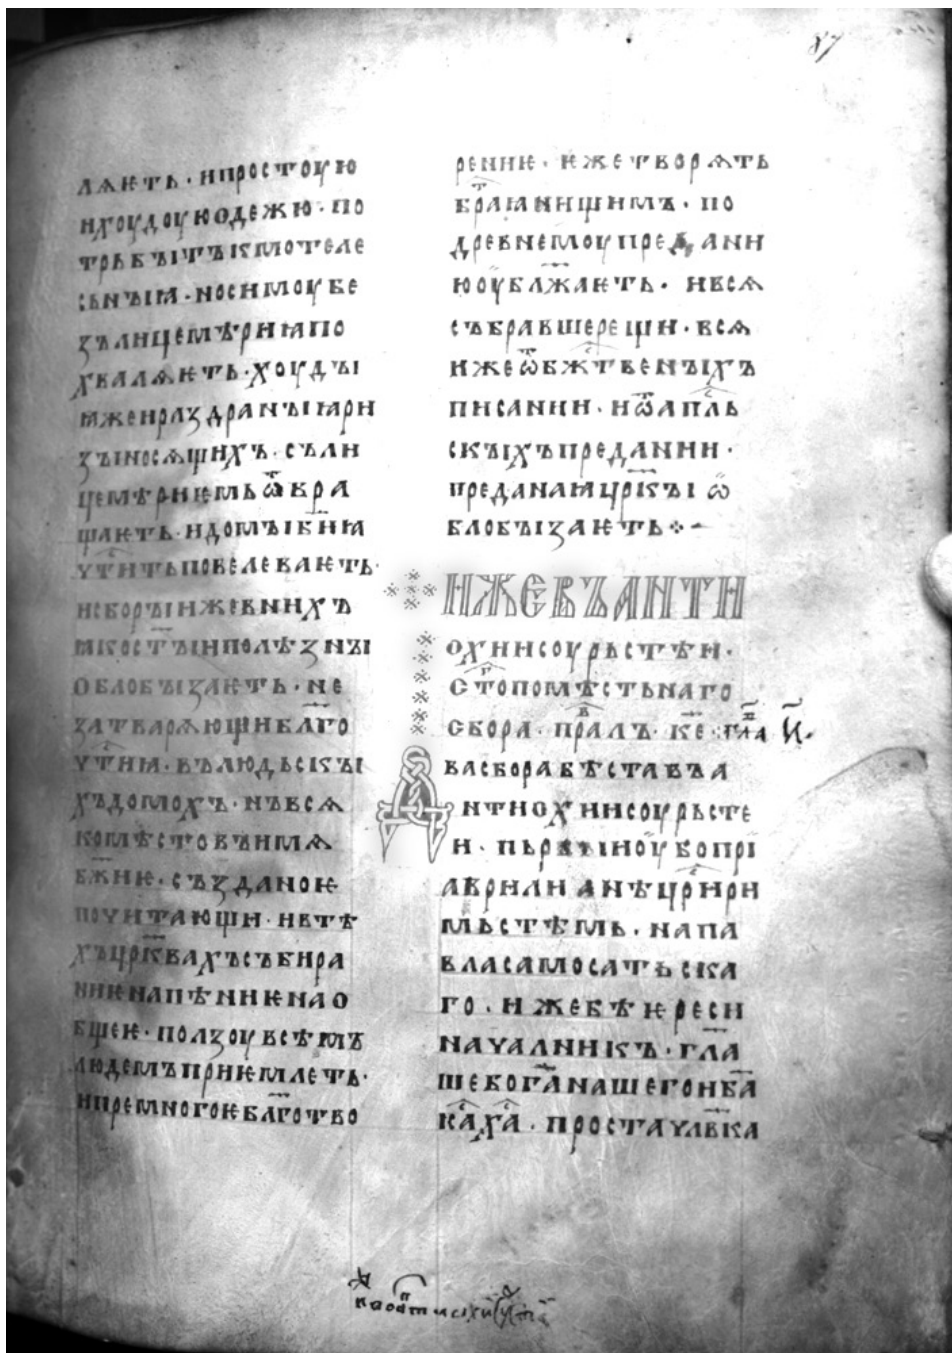 87
лѧѥть · и простоую
и хоудоую одежю · по
трьбы тъкмо теле
сьныꙗ · носимоу бе
зълицемѣриꙗ по
хвалѧѥть · хоудъі
ꙗже и раздранъіꙗ ри
зъі носѧщихъ · съ ли
цемѣриѥмь ѿвра
щаѥть · и домъі бж҃иꙗ
чⷭ҇тити повелеваѥть ·
и сборъі иже в нихъ
ꙗко ст҃ъі и полѣзнъі
облобъізаѥть · не
затварѧющи бл҃го
чⷭ҇тиꙗ · въ людьскъі
хъ домохъ · нъ всѧ
ко мѣсто въ имѧ
бж҃иѥ · създаноѥ
почитающи · и въ тѣ
хъ цр҃квахъ събира
ниѥ на пѣниѥ на о
бщеѥ · ползоу всѣмъ
людемъ приѥмлеть ·
и премногоѥ бл҃готво
рениѥ · ѥже творѧть
браⷮꙗ нищимъ · по
древнемоу предани
ю оубл҃жаѥть · и всѧ
събравше рещи · всѧ
иже ѿ бжⷭ҇твеныхъ
писании · и ѿ апⷭ҇ль
скъіхъ предании ·
преданаꙗ цр҃къі ѡ
блобъізаѥть
Иже въ анти
охии соурьстѣи ·
ст҃го помѣстьнаго
сбора · правⷧ҇ъ · к҃е · гл҃а н҃ ·
Два сбора бѣста въ а
нтиохии соурьсте
и · пьрвъіи оубо при
аврилиане црⷭ҇и ри
мьстѣмь · на па
вла самосатьска
го · иже бѣ ѥреси
началникъ · гл҃а
ше бо г҃а нашего и б҃а
і҃са х҃а · проста чл҃вка